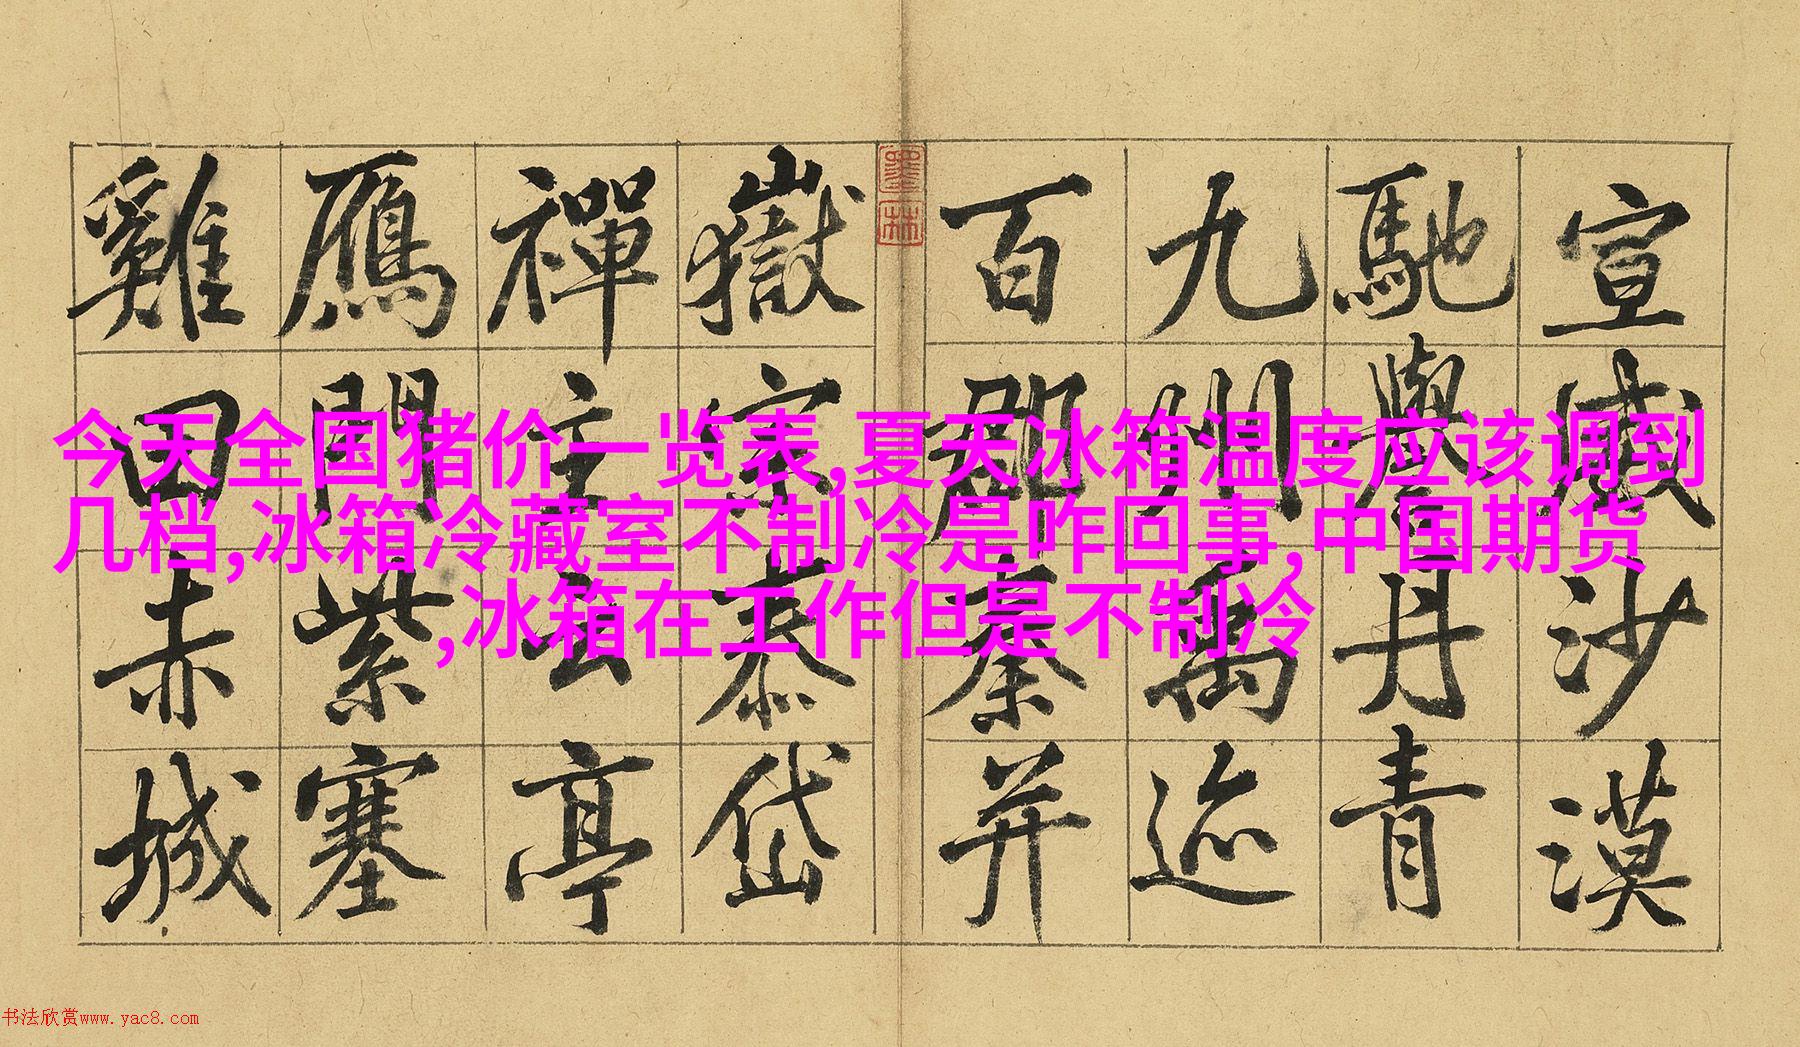 宣威沙漠
馳譽丹青
九州禹迹
百郡秦并
墨林
嶽宗泰岱
禪主云亭
鴈門紫塞
雞田赤城
今天全国猪价一览表,夏天冰箱温度应该调到
几档,冰箱冷藏室不制冷是咋回事,中国期货
,冰箱在工作但是不制冷
书法欣赏www.yac8.com